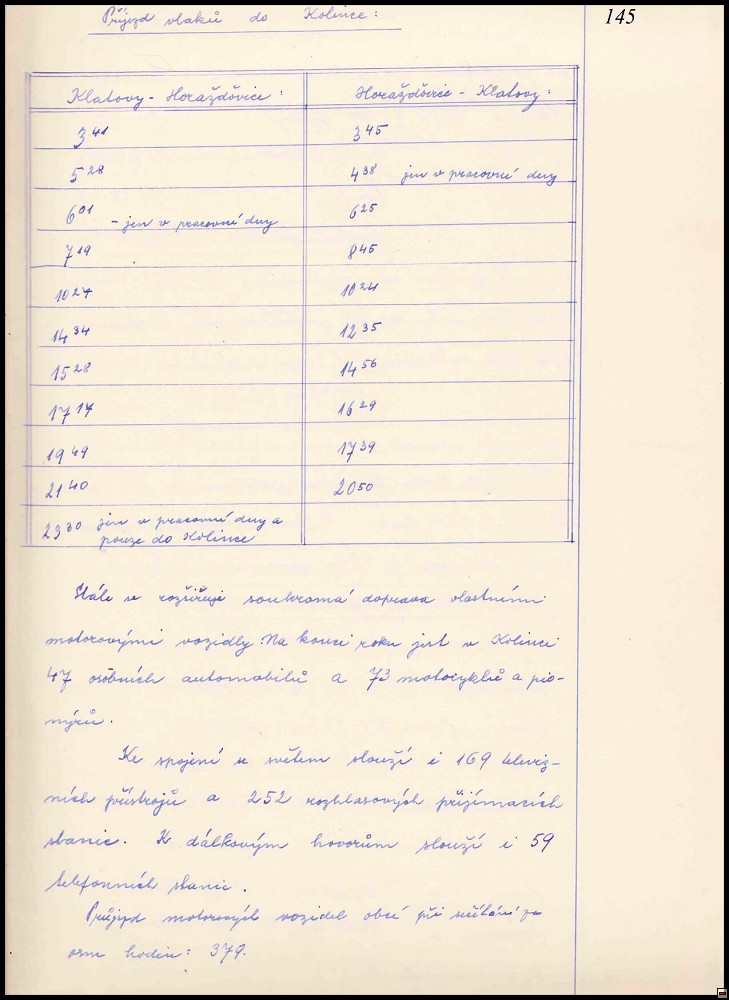 Příjezd vlaků do Kolince:
145
Klatovy - Horažďovice: Horažďovice - Klatovy:
3 41 3 45
5 28 4 38 jen v pracovní dny
6 01 - jen v pracovní dny 6 25
7 19 8 45
10 27 10 24
14 34 12 35
15 28 14 56
17 17 16 29
19 49 17 39
21 40 20 50
23 30 jen v pracovní dny a
pouze do Kolince
Stále se rozšiřuje soukromá doprava vlastními
motorovými vozidly. Na konci roku jest v Kolinci
47 osobních automobilů a 73 motocyklů a pio-
nýrů.
Ke spojení se světem slouží i 169 televiz-
ních přístrojů a 252 rozhlasových přijímacích
stanic. K dálkovým hovorům slouží i 59
telefonních stanic.
Průjezd motorových vozidel obcí při sčítání za
osm hodin: 379.